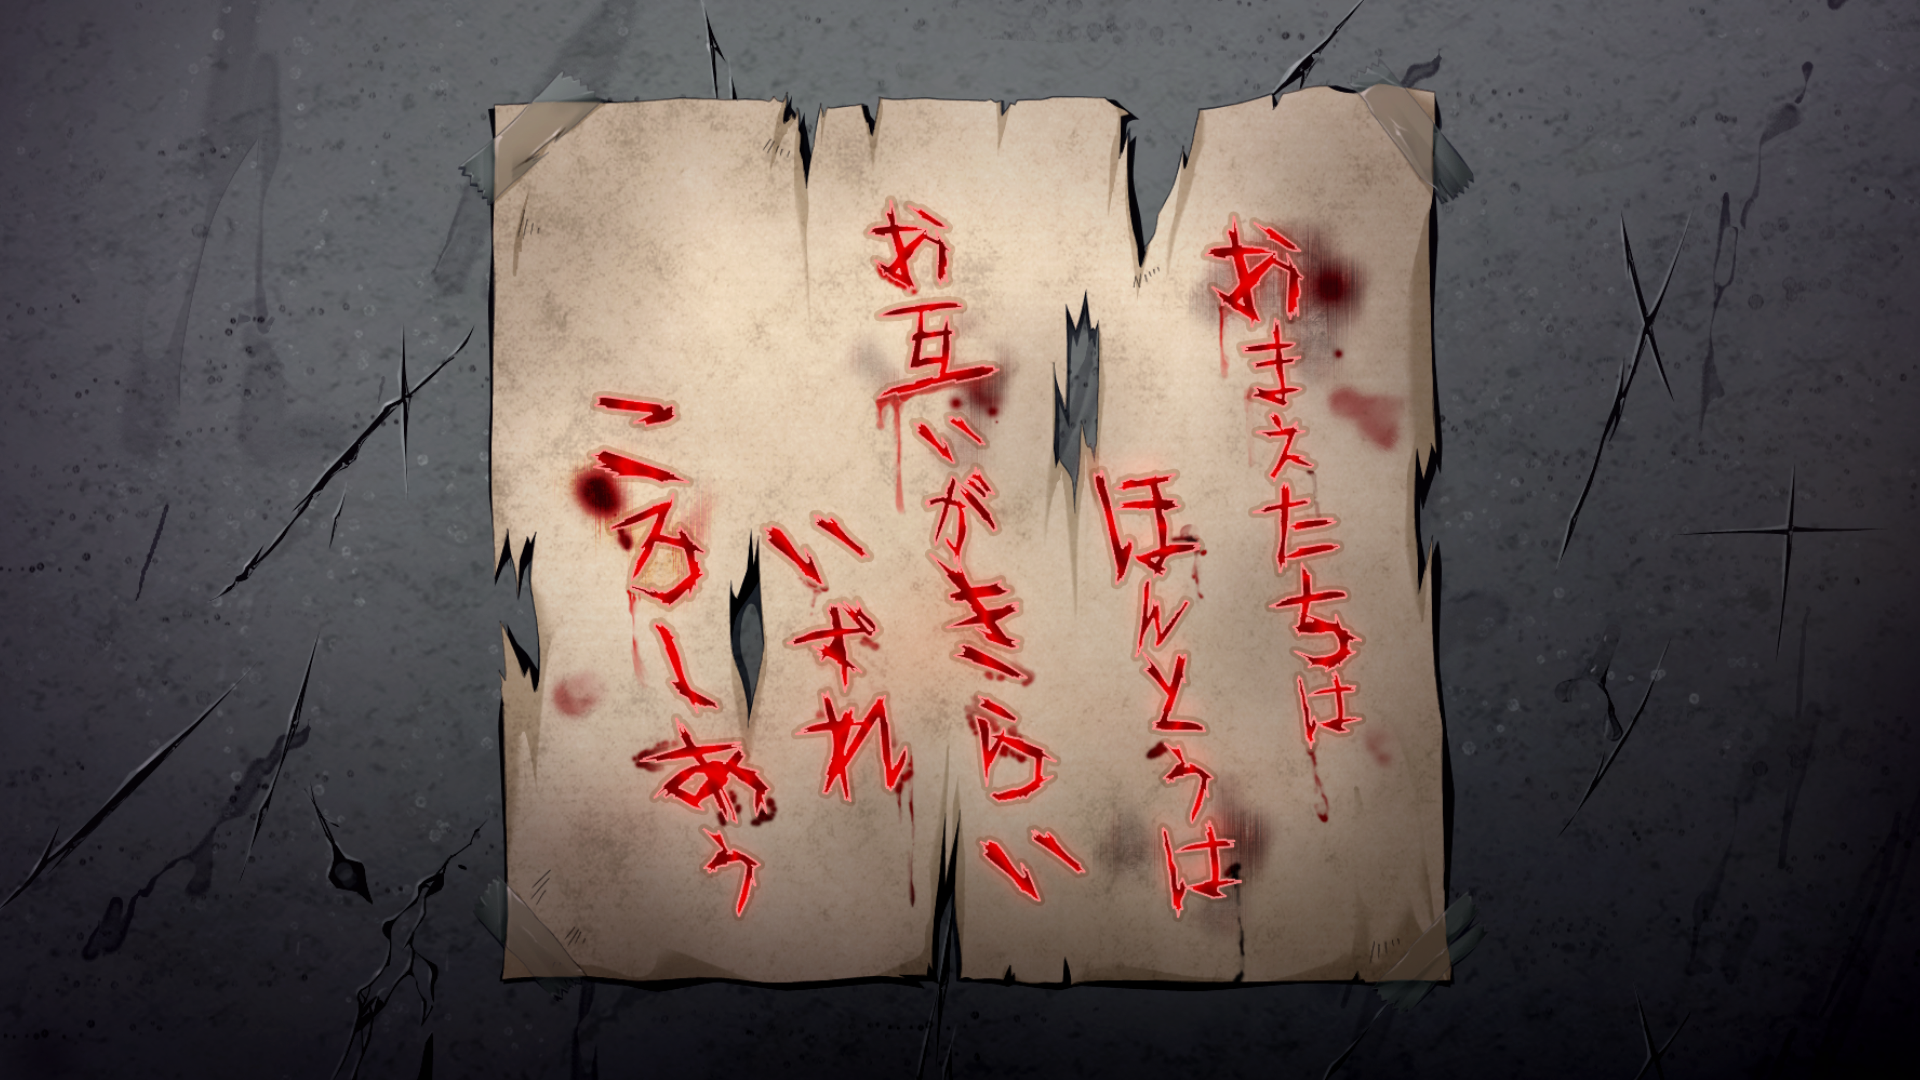 おまえたちは
ほんとうは
お互いがきらい
いずれ
ころしあう